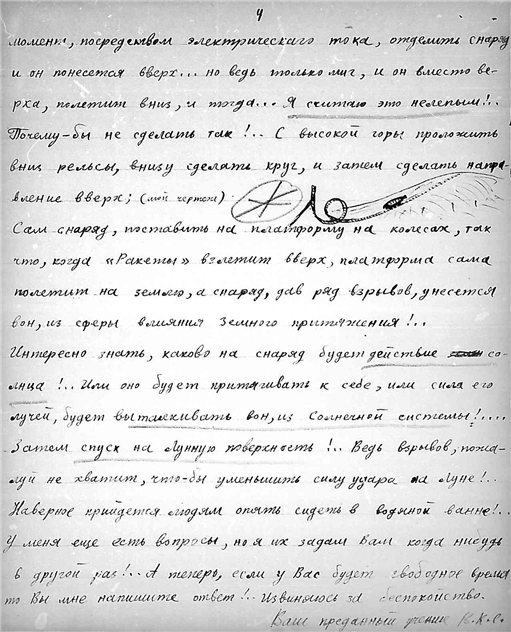 4
момент, посредством электрическаго тока, отделить снаряд
и он понесется вверх... но ведь только миг, и он вместо ве-
рха, полетит вниз, и тогда... Я считаю это нелепым!..
Почему-бы не сделать так!.. С высокой горы проложить
вниз рельсы, внизу сделать круг, и затем сделать напра-
вление вверх; (мой чертеж)
Сам снаряд, поставить на платформу на колесах, так
что, когда «Ракеты» взлетит вверх, платформа сама
полетит на землю, а снаряд, дав ряд взрывов, унесется
вон, из сферы влияния Земного притяжения!..
Интересно знать, каково на снаряд будет действие со-
лнца!.. Или оно будет притягивать к себе, или сила его
лучей, будет выталкивать вон, из Солнечной системы!....
Затем спуск на Лунную поверхность!.. Ведь взрывов, пожа-
луй не хватит, что-бы уменьшить силу удара на Луне!..
Наверное прийдется людям опять сидеть в водяной ванне!..
У меня еще есть вопросы, но я их задам Вам когда нибудь
в другой раз!... А теперь, если у Вас будет свободное время
то Вы мне напишите ответ!.. Извиняюсь за беспокойство.
Ваш преданный ученик